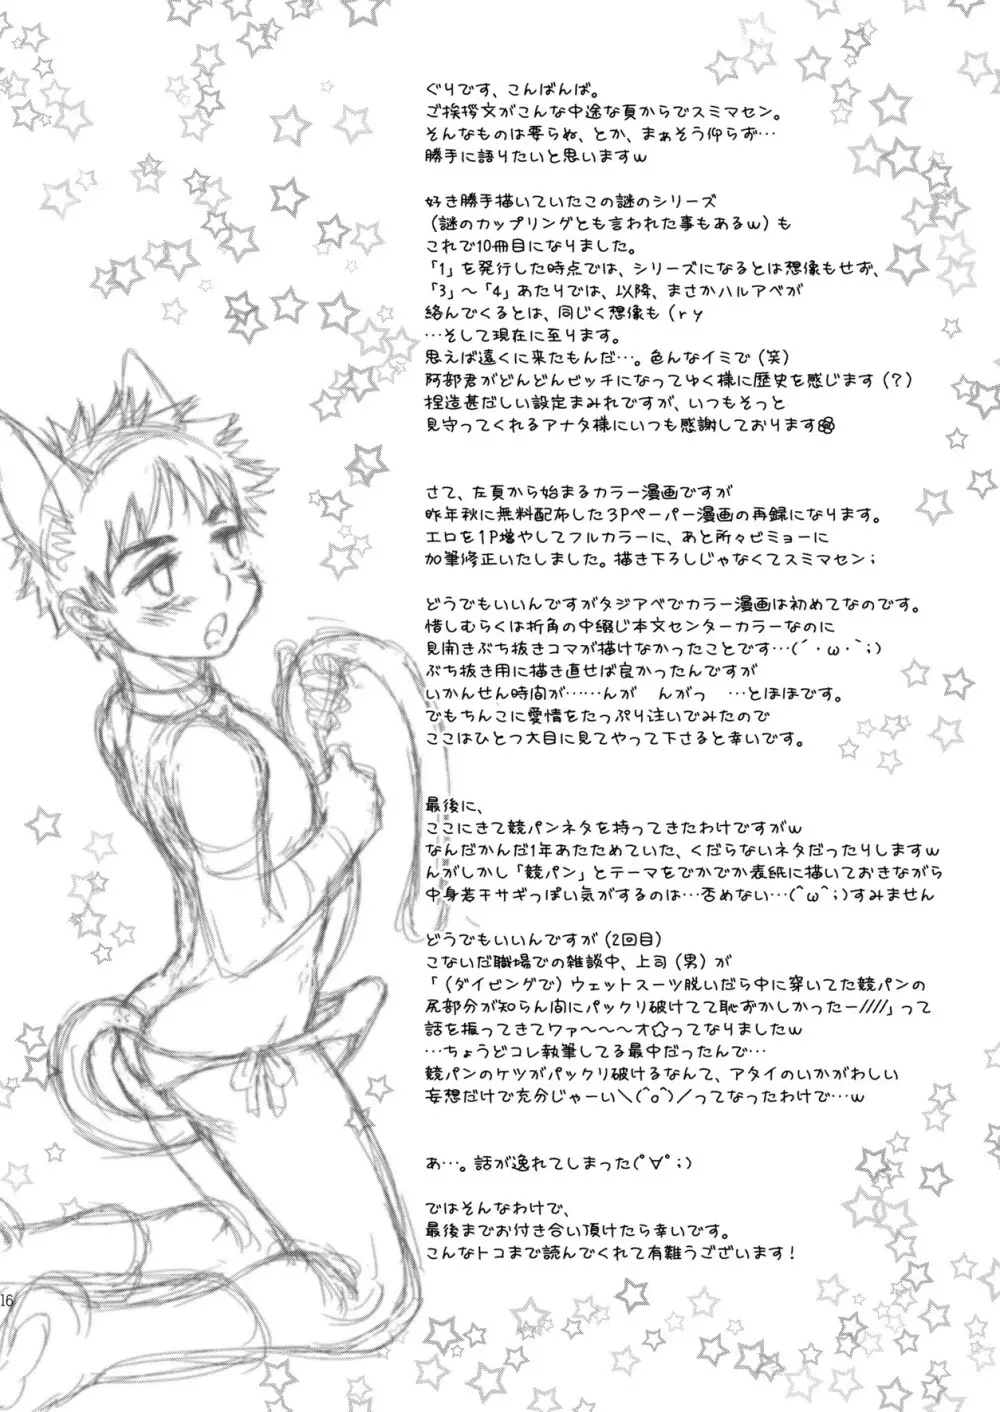 ぐりです、こんばんば。
ご挨拶文がこんな中途な頁からでスミマセン。
そんなものは要らぬ、とか、まぁそう仰らず…
勝手に語りたいと思いますw
好き勝手描いていたこの謎のシリーズ
(謎のカップリングとも言われた事もあるw)も
これで10冊目になりました。
「1」を発行した時点では、シリーズになるとは想像もせず、
「3」～「4」あたりでは、以降、まさかハルアベが
絡んでくるとは、同じく想像も(ry
…そして現在に至ります。
思えば遠くに来たもんだ…。色んなイミで(笑)
阿部君がどんどんビッチになってゆく様に歴史を感じます(?)
捏造甚だしい設定まみれですが、いつもそっと
見守ってくれるアナタ様にいつも感謝しております
さて、左頁から始まるカラー漫画ですが
昨年秋に無料配布した3Pペーパー漫画の再録になります。
エロを1P増やしてフルカラーに、あと所々ビミョーに
加筆修正いたしました。描き下ろしじゃなくてスミマセン;
どうでもいいんですがタジアベでカラー漫画は初めてなのです。
惜しむらくは折角の中綴じ本文センターカラーなのに
見開きぶち抜きコマが描けなかったことです…(´・ω・`;)
ぶち抜き用に描き直せば良かったんですが
いかんせん時間が……んが　んがっ　…とほほです。
でもちんこに愛情をたっぷり注いでみたので
ここはひとつ大目に見てやって下さると幸いです。
最後に、
ここにきて競パンネタを持ってきたわけですがw
なんだかんだ1年あたためていた、くだらないネタだったりしますw
んがしかし「競パン」とテーマをでかでか表紙に描いておきながら
中身若干サギっぽい気がするのは…否めない…(^ω^;)すみません
どうでもいいんですが(2回目)
こないだ職場での雑談中、上司(男)が
「(ダイビングで)ウェットスーツ脱いだら中に穿いてた競パンの
尻部分が知らん間にパックリ破けてて恥ずかしかったー////」って
話を振ってきてワァ～～～オ☆ってなりましたw
…ちょうどコレ執筆してる最中だったんで…
競パンのケツがパックリ破けるなんて、アタイのいかがわしい
妄想だけで充分じゃーい＼(^o^)／ってなったわけで…w
あ…。話が逸れてしまった(ﾟ∀ﾟ;)
ではそんなわけで、
最後までお付き合い頂けたら幸いです。
こんなトコまで読んでくれて有難うございます!
16